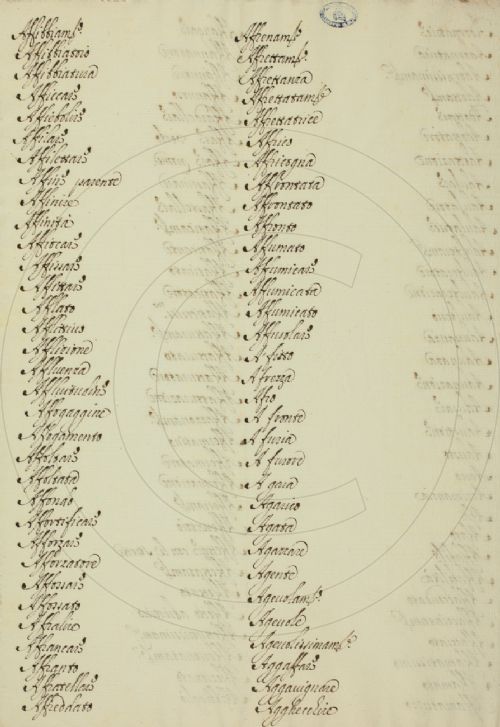 Affibbiam.to
Affibbiatoio
Affibbiatura
Afficcare
Affievolire
Affilare
Affilettare
Affine parente
Affinire
Affinità
Affiocare
Affisare
Affittare
Afflato
Afflittivo
Afflizione
Affluenza
Affogaggine
Affogamento
Affoltare
Affoltata
Affondo
Affortificare
Afforzare
Afforzatore
Affossare
Affossato
Affralire
Affrancare
Affranto
Affratellare
Affreddato
Affrenam.to
Affrettam.to
Affrettanza
Affrettatam.te
Affrettatrice
Affrico
Affricogna
Affrontata
Affrontato
Affronto
Affumato
Affumicare
Affumicata
Affumicato
Affusolare
A fitto
A forza
Afro
A fronte
A furia
A furore
A gara
Agarico
Agata
Agente
Agevolam.te
Agevole
Agevolissimam.te
Aggaffare
Aggavignare
Agghecchire